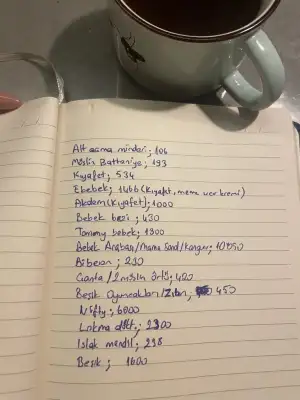 Alt açma minderi; 106
Müslin Battaniye; 193
Kıyafet; 534
Ebebek; 1466 (Kıyafet, meme ucu kremi)
Akdem(Kıyafet); 1000
Bebek bezi; 430
Tommy bebek; 1300
Bebek Arabası/Mama Sand/Kanguru; 10'050
Biberon; 230
Çanta / 2 müslin örtü; 420
Beşik Oyuncakları/Zıbın; 450
Nifty; 6000
Lohusa 2300
Islak mendil; 298
Beşik; 1600